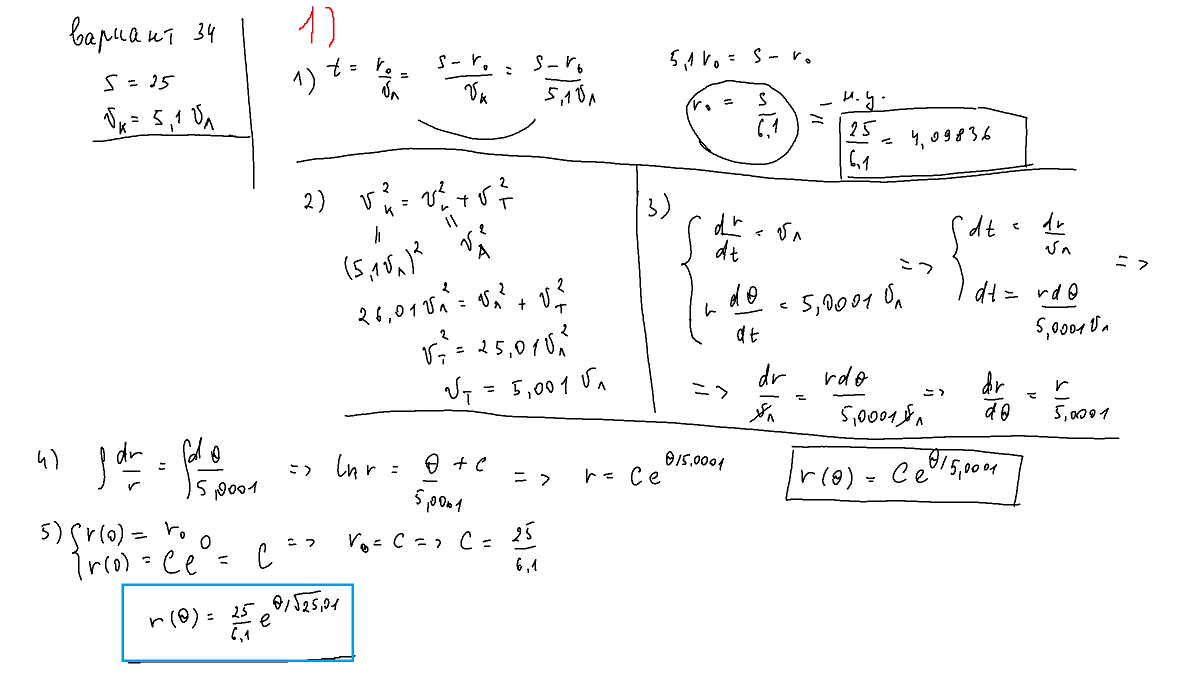 вариант 34
S = 25
v_к = 5,1 v_л
1)
1) t = r₀/v_л = (S − r₀)/v_к = (S − r₀)/(5,1v_л)
5,1 r₀ = S − r₀
r₀ = S/6,1 — н.у.
= 25/6,1 = 4,09836
2) v_к² = v_r² + v_т²
(5,1v_л)² v_л²
26,01v_л² = v_л² + v_т²
v_т² = 25,01v_л²
v_т = 5,001 v_л
3) { dr/dt = v_л
r dθ/dt = 5,0001 v_л
=> { dt = dr/v_л
dt = rdθ/(5,0001v_л) =>
=> dr/v_л = rdθ/(5,0001v_л) => dr/dθ = r/5,0001
4) ∫ dr/r = ∫ dθ/5,0001 => ln r = θ/5,0001 + c => r = Ce^(θ/5,0001) r(θ) = Ce^(θ/5,0001)
5) { r(0) = r₀
r(0) = Ce⁰ = C => r₀ = C => C = 25/6,1
r(θ) = 25/6,1 e^(θ/√25,01)